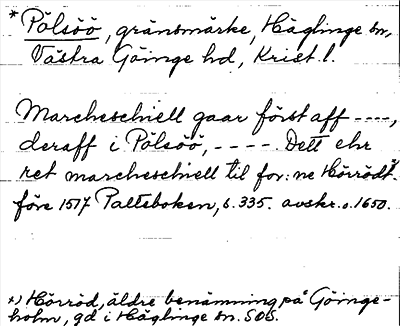 * Pölsöö, gränsmärke, Häglinge sn,
Västra Göinge hd, Krist. l.
Marcheschiell gaar först aff ----,
deraff i Pölsöö, ---- . Dett ehr
ret marcheschiell til for: ne Hörrödt *)
före 1517 Palteboken, s. 335. avskr. o. 1650.
*) Hörröd, äldre benämning på Göinge-
holm, gd i Häglinge sn. SOS.